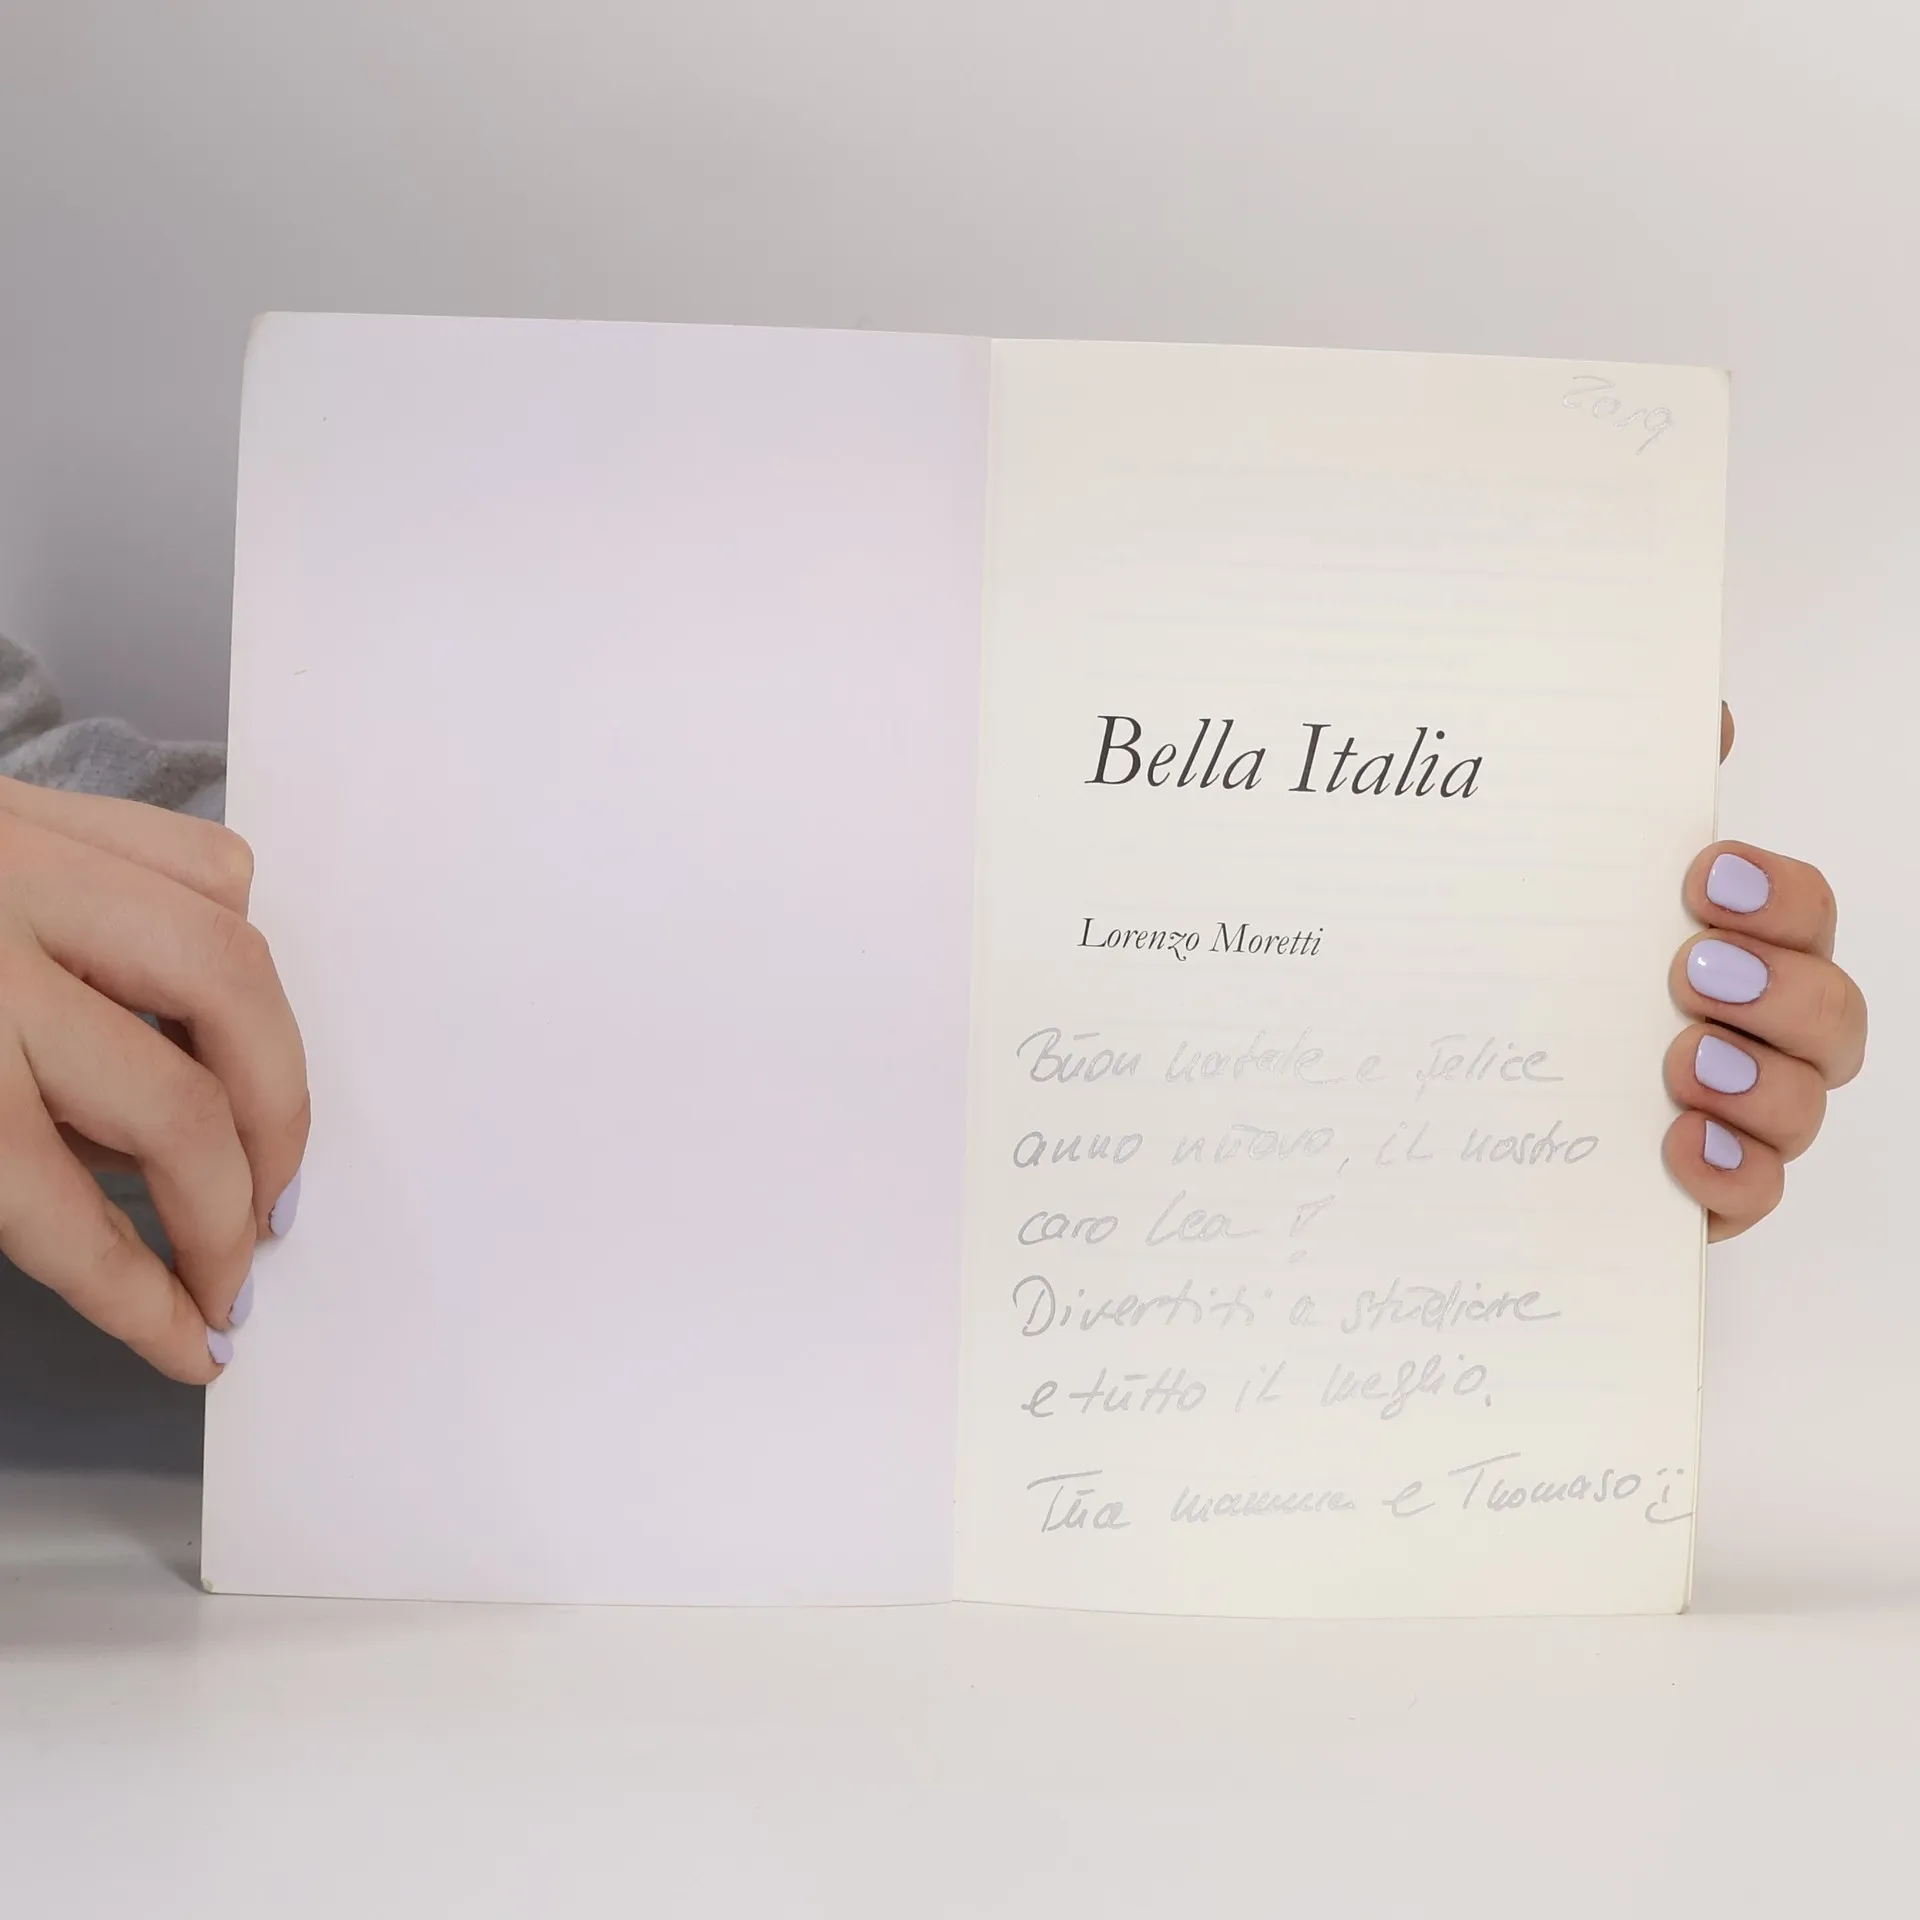 2019
Bella Italia
Lorenzo Moretti
Būon natale e felice
anno nūovo, il nostro
caro Lea !
Divertiti a stūdiare
e tūtto il meglio.
Tūa mamma e Thomaso :)